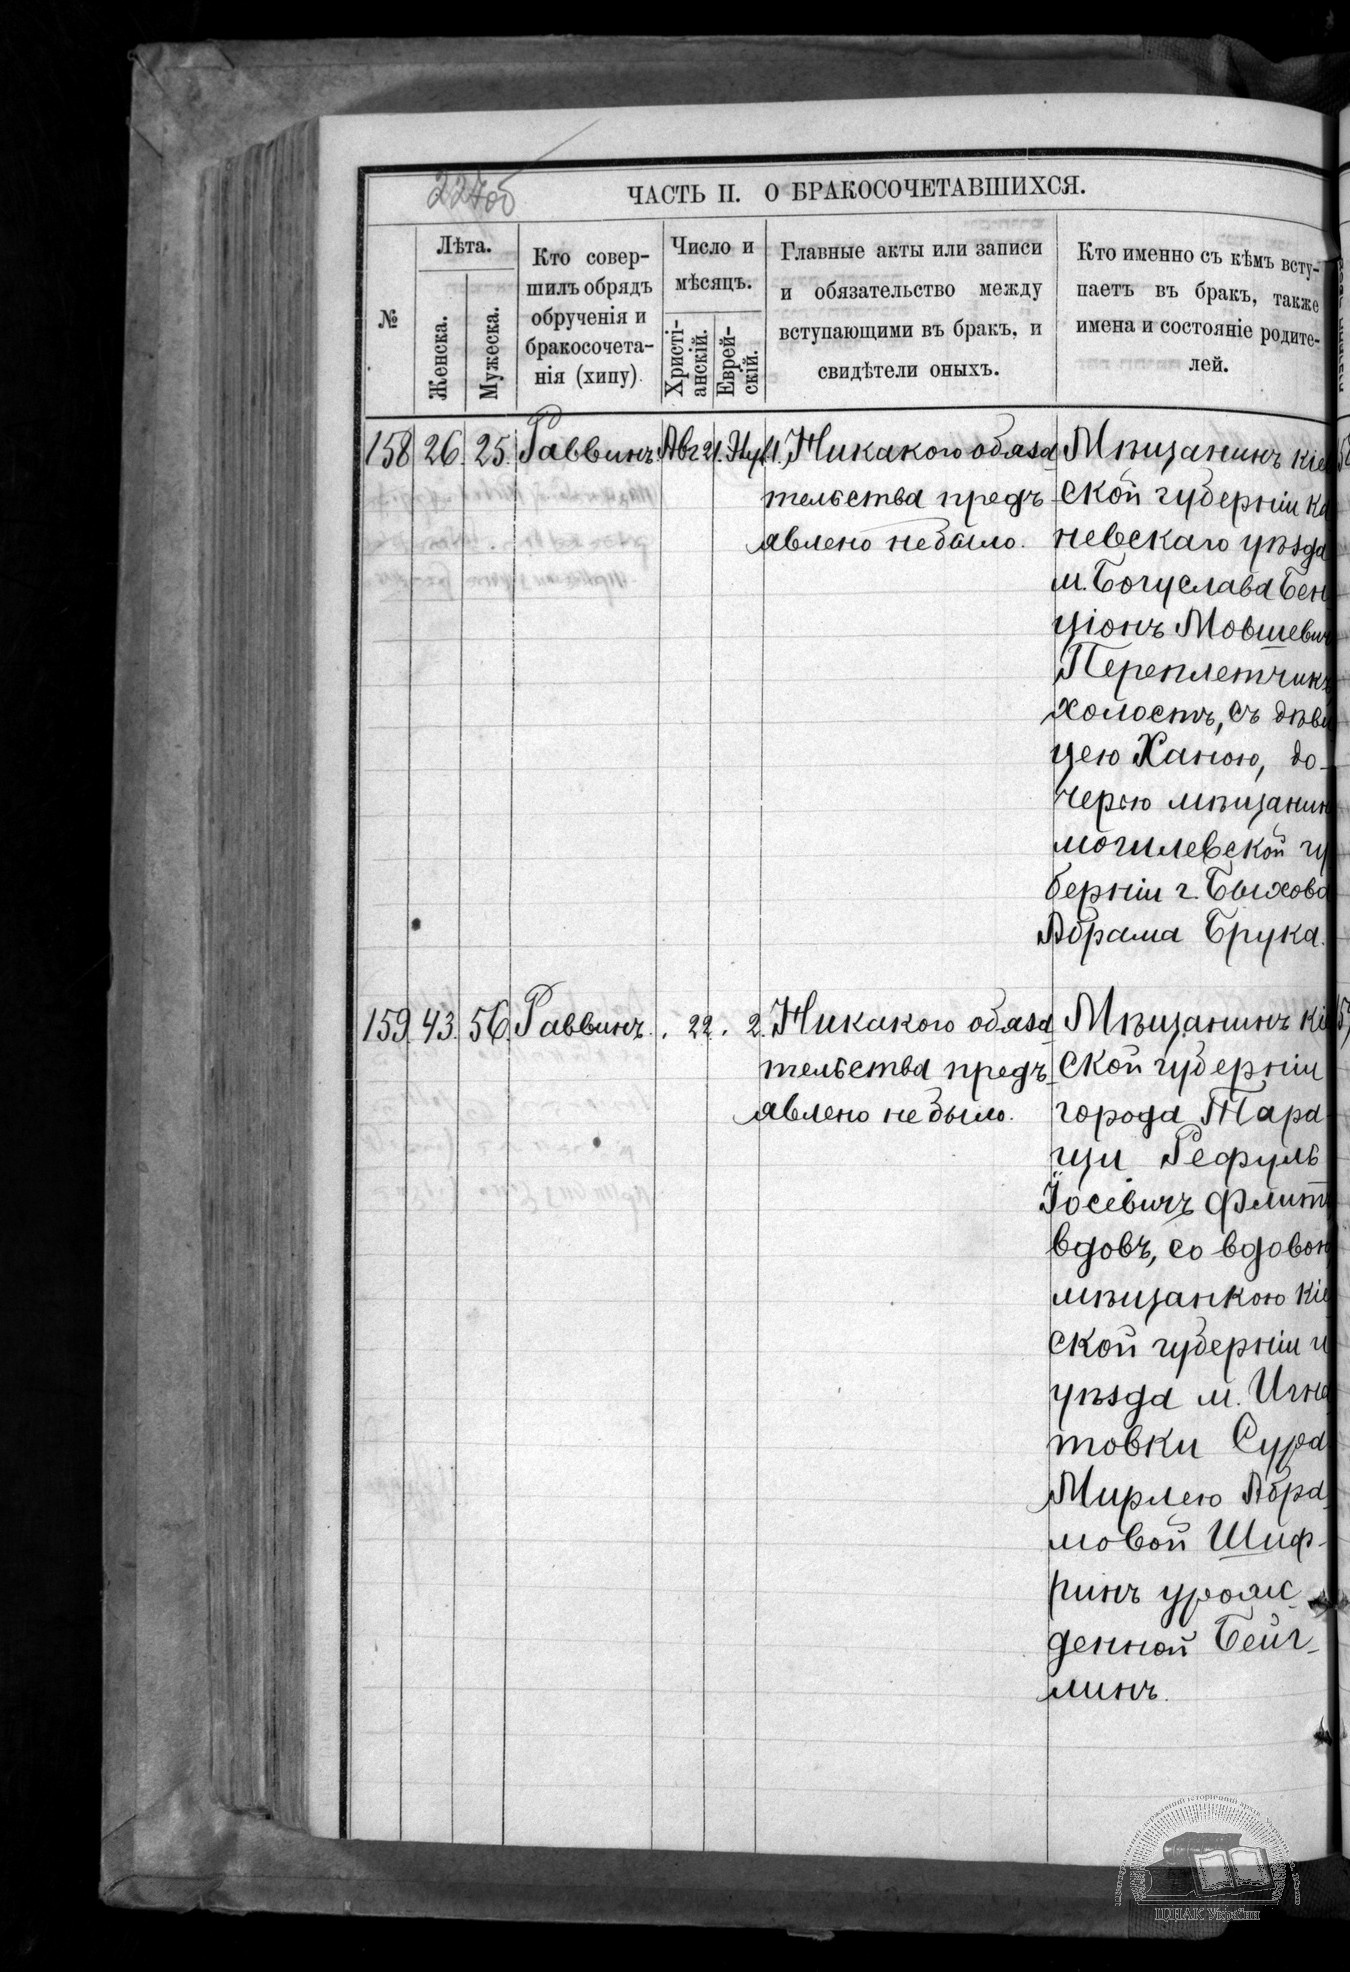 227об
ЧАСТЬ II. О БРАКОСОЧЕТАВШИХСЯ.
№
Лѣта.
Женска.
Мужеска.
Кто совер-
шилъ обрядъ
обрученія и
бракосочета-
нія (хипу).
Число и
мѣсяцъ.
Христі-
анскій.
Еврей-
скій.
Главные акты или записи
и обязательство между
вступающими въ бракъ, и
свидѣтели оныхъ.
Кто именно съ кѣмъ всту-
паетъ въ бракъ, также
имена и состояніе родите-
лей.
158 26. 25. Раввинъ Авг 21. 1. Никакого обяза
тельства предъ
явлено не было.
Мѣщанинъ Кіе
ской губерніи Ка
невскаго уѣзда
м. Богуслава Бен
ціонъ Мовшевич
Переплетчикъ
холостъ, съ дѣви
цею Ханою, до-
черью мѣщанин
могилевской гу
берніи г. Быхова
Абрама Брука.
159. 43. 56. Раввинъ. . 22. . 2. Никакого обяза
тельства предъ
явлено не было.
Мѣщанинъ Кі
ской губерніи
города Тара
щи Рефуль
Іосевичъ Флит
вдовъ, со вдовою
мѣщанкою Кіе
ской губерніи и
уѣзда м. Игна
товки Сура
Мирлею Абра
мовой Шиф-
ринъ урож
денной Бейг-
линъ.
ЦДІАК України